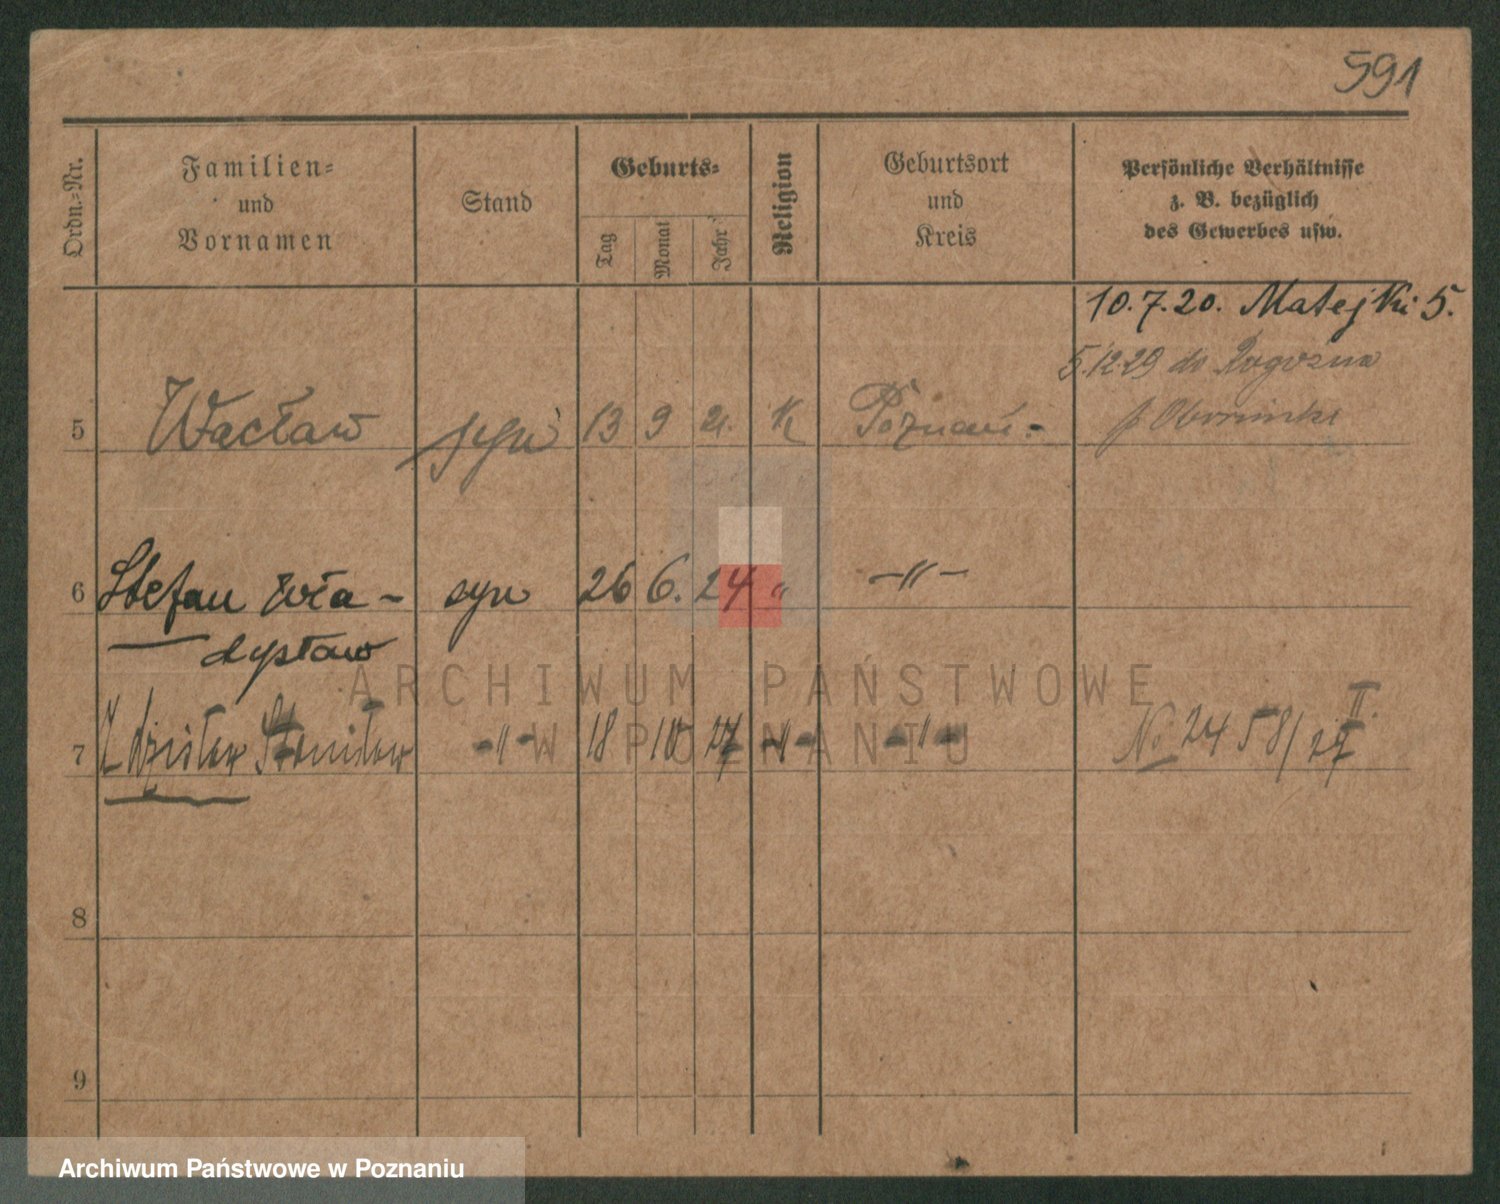 591
Ordn.-Nr.
Familien-
und
Vornamen
Stand
Geburts-
Tag
Monat
Jahr
Religion
Geburtsort
und
Kreis
Persönliche Verhältnisse
z. B. bezüglich
des Gewerbes usw.
10.7.20. Matejki 5.
5.12.29 do Rogozna
5 Wacław syn 13 9 21. K Poznań.-
6 Stefan Wła- syn 26 6. 24 „ -„-
dysław
7 Zdzisław Stanisław -„- 18 10 27 -„- -„- No 2458/27 II.
8
9
ARCHIWUM PAŃSTWOWE
W POZNANIU
Archiwum Państwowe w Poznaniu